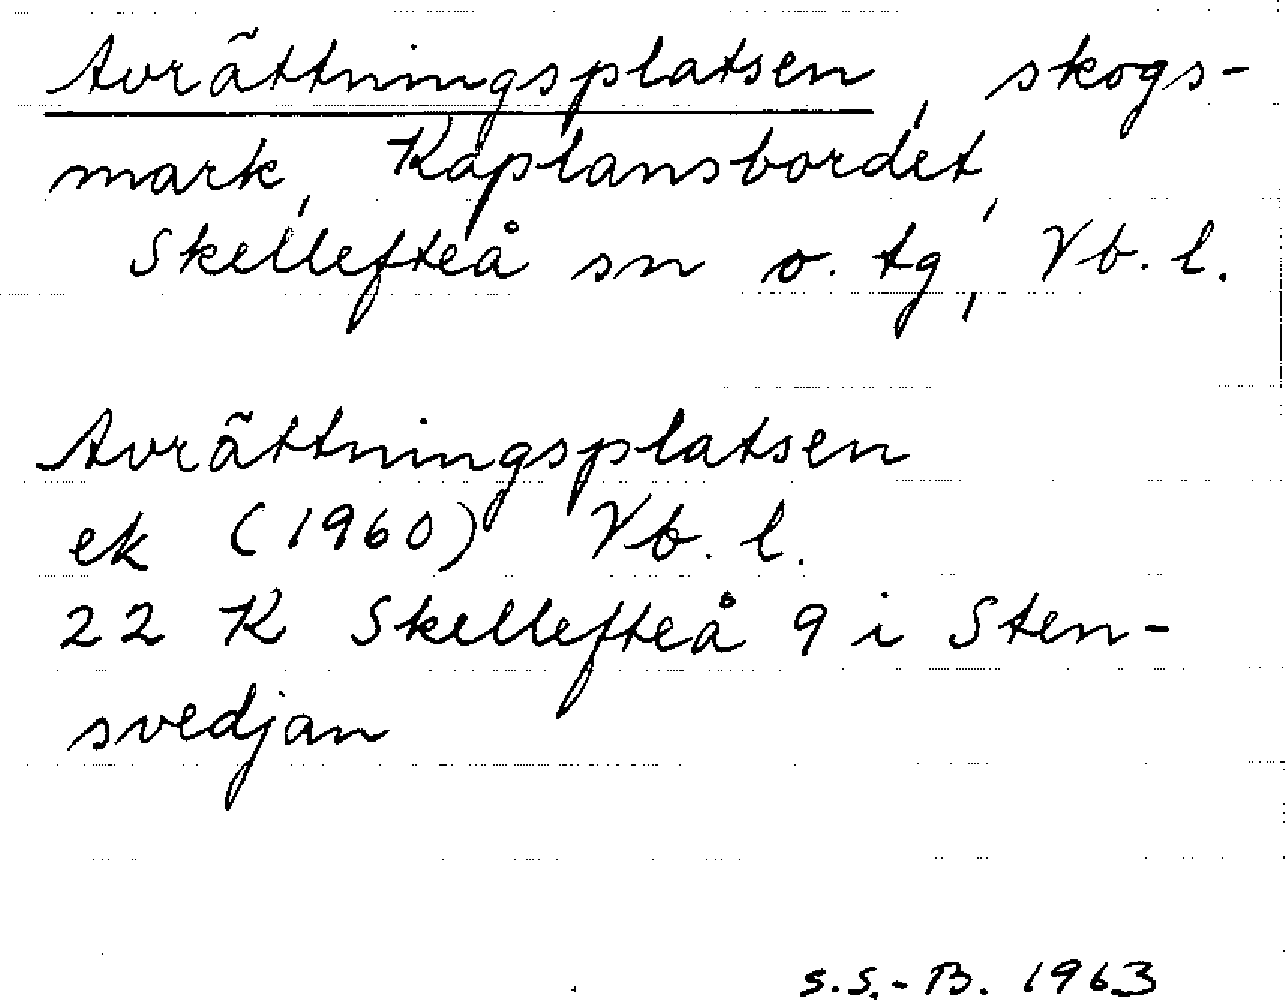 Avrättningsplatsen, skogs-
mark, Kaplansbordet,
Skellefteå sn o. tg, Vb. l.
Avrättningsplatsen
ek (1960) Vb. l.
22 K Skellefteå 9 i Sten-
svedjan
S.S.-B. 1963